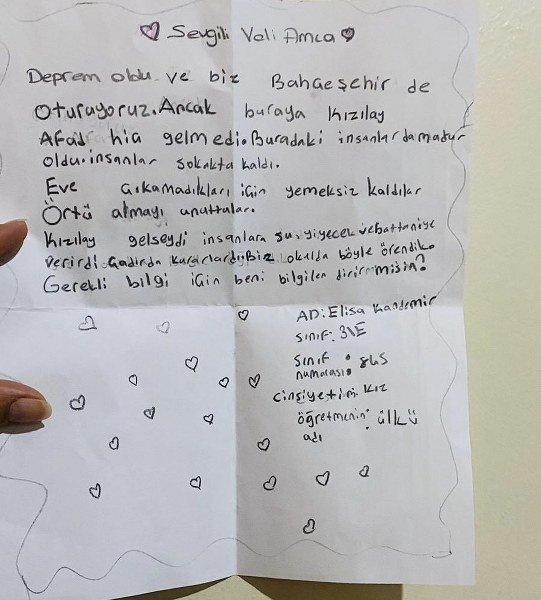 Sevgili Vali Amca
Deprem oldu ve biz Bahçeşehir de
Oturuyoruz. Ancak buraya Kızılay
Afad hiç gelmedi. Buradaki insanlar da mağdur
oldu. insanlar sokakta kaldı.
Eve çıkamadıkları için yemeksiz kaldılar
Örtü almayı unuttular.
Kızılay gelseydi insanlara su, yiyecek ve battaniye
verirdi. Çadırda kurarlardı. Biz okulda böyle örendik.
Gerekli bilgi için beni bilgilen dirirmisin?
AD: Elisa Kandemir
sınıf: 3\E
sınıf :
numarası
cinsiyetim: kız
öğretmenin: ülkü
adı